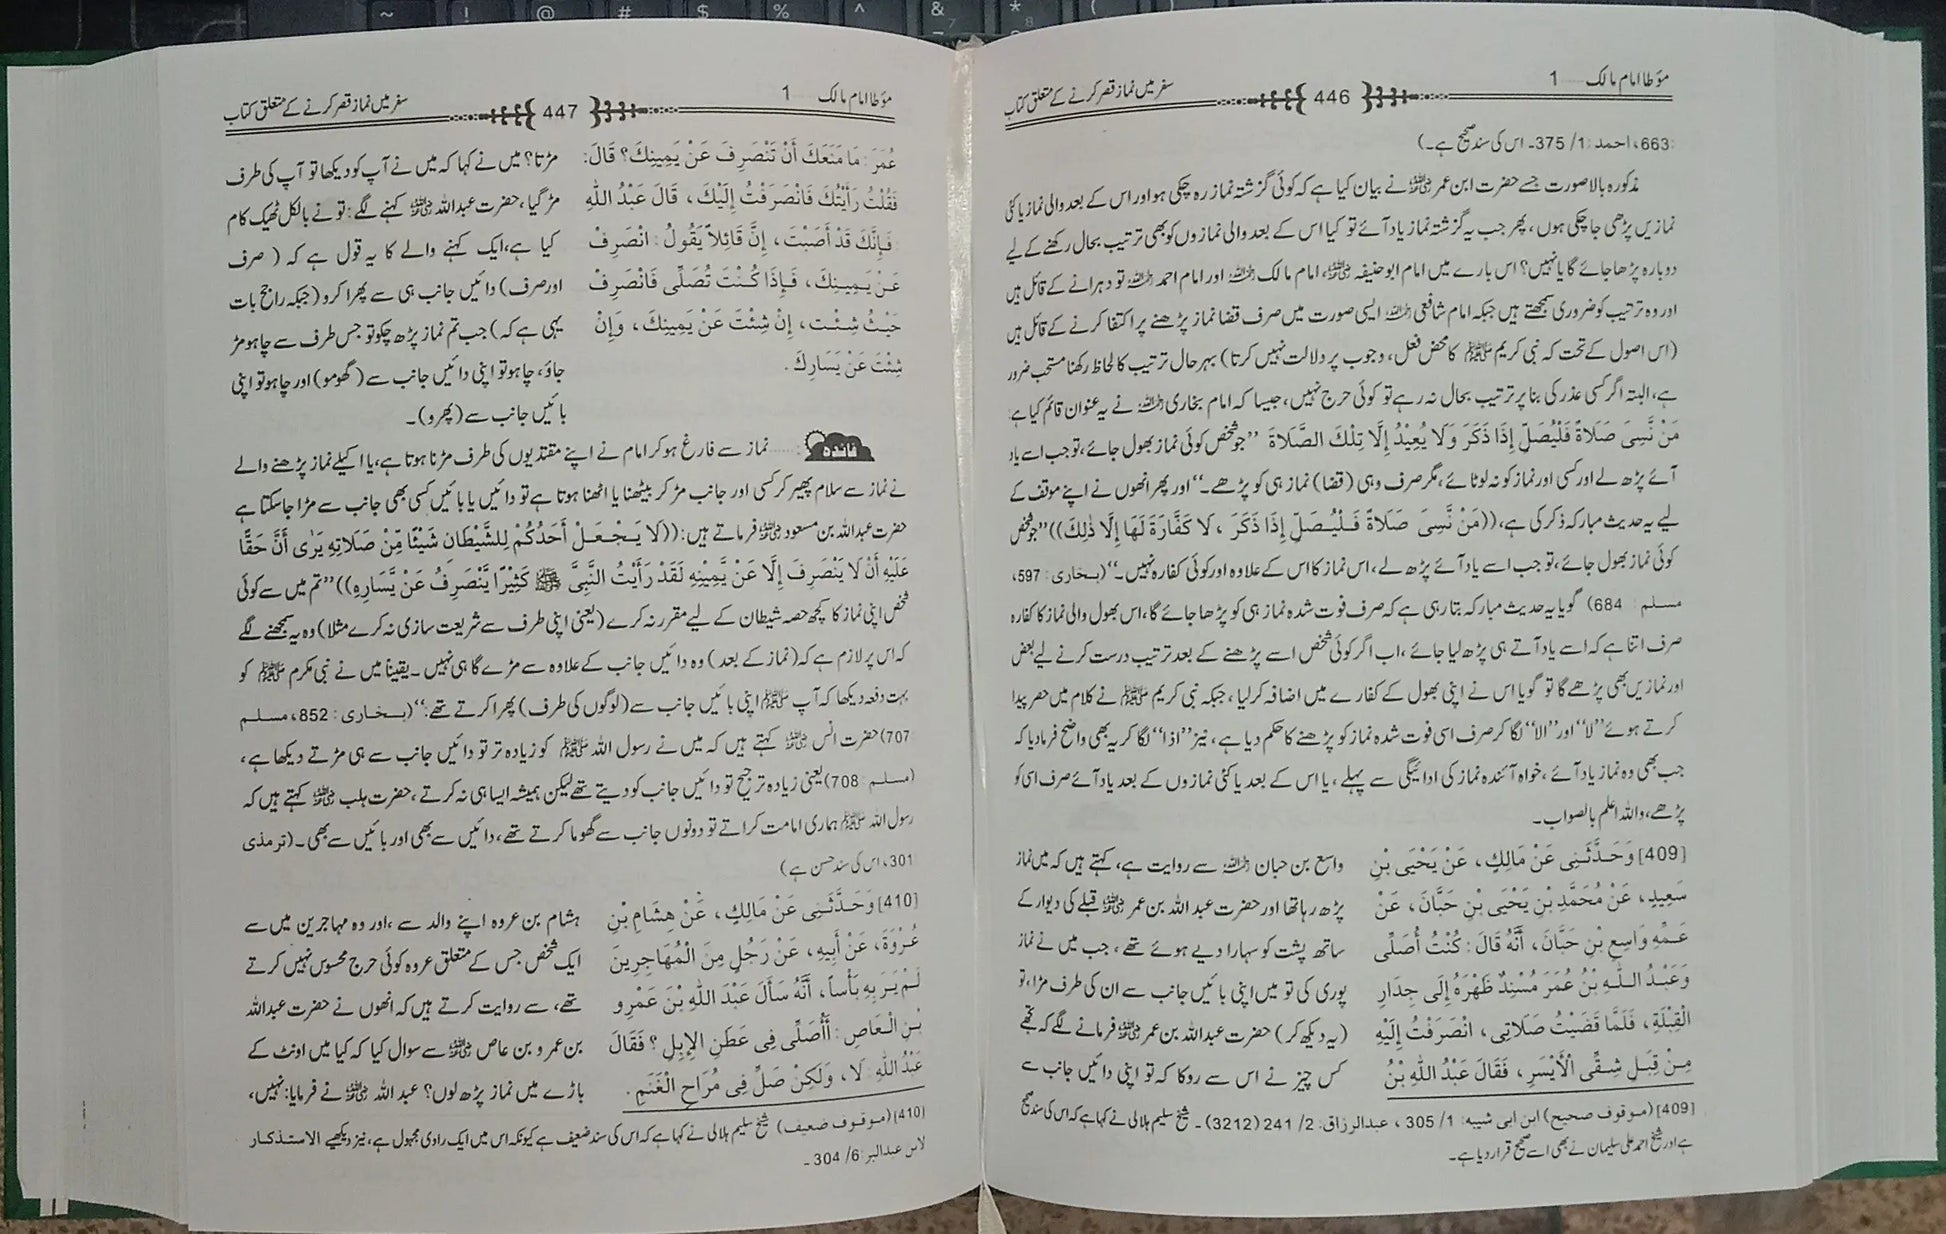 مؤطا امام مالک ...... 1
446
سفر میں نماز قصر کرنے کے متعلق کتاب
663، احمد: 1/ 375۔ اس کی سند صحیح ہے۔)
مذکورہ بالا صورت جسے حضرت ابن عمر رضی اللہ عنہ نے بیان کیا ہے کہ کوئی گزشتہ نماز رہ چکی ہو اور اس کے بعد والی نماز یا کئی
نمازیں پڑھی جا چکی ہوں، پھر جب یہ گزشتہ نماز یاد آئے تو کیا اس کے بعد والی نمازوں کو بھی ترتیب بحال رکھنے کے لیے
دوبارہ پڑھا جائے گا یا نہیں؟ اس بارے میں امام ابو حنیفہ، امام مالک رحمہ اللہ اور امام احمد رحمہ اللہ تو دہرانے کے قائل ہیں
اور وہ ترتیب کو ضروری سمجھتے ہیں جبکہ امام شافعی رحمہ اللہ ایسی صورت میں صرف قضا نماز پڑھنے پر اکتفا کرنے کے قائل ہیں
(اس اصول کے تحت کہ نبی کریم ﷺ کا محض فعل، وجوب پر دلالت نہیں کرتا) بہرحال ترتیب کا لحاظ رکھنا مستحب ضرور
ہے، البتہ اگر کسی عذر کی بنا پر ترتیب بحال نہ رہے تو کوئی حرج نہیں، جیسا کہ امام بخاری رحمہ اللہ نے یہ عنوان قائم کیا ہے
مَنْ نَّسِىَ صَلَاةً فَلْيُصَلِّ إِذَا ذَكَرَ وَلَا يُعِيْدُ إِلَّا تِلْكَ الصَّلَاةَ ”جو شخص کوئی نماز بھول جائے، تو جب اسے یاد
آئے پڑھ لے اور کسی اور نماز کو نہ لوٹائے، مگر صرف وہی (قضا) نماز ہی کو پڑھے۔“ اور پھر انھوں نے اپنے موقف کے
لیے یہ حدیث مبارکہ ذکر کی ہے، ((مَنْ نَّسِىَ صَلَاةً فَلْيُصَلِّ إِذَا ذَكَرَ، لَا كَفَّارَةَ لَهَا إِلَّا ذٰلِكَ)) ”جو شخص
کوئی نماز بھول جائے، تو جب اسے یاد آئے پڑھ لے، اس نماز کا اس کے علاوہ اور کوئی کفارہ نہیں۔“ (بخاری: 597،
مسلم: 684) گویا یہ حدیث مبارکہ بتا رہی ہے کہ صرف فوت شدہ نماز ہی کو پڑھا جائے گا، اس بھول والی نماز کا کفارہ
صرف اتنا ہے کہ اسے یاد آتے ہی پڑھ لیا جائے، اب اگر کوئی شخص اسے پڑھنے کے بعد ترتیب درست کرنے لیے بعض
اور نمازیں بھی پڑھے گا تو گویا اس نے اپنی بھول کے کفارے میں اضافہ کر لیا، جبکہ نبی کریم ﷺ نے کلام میں حصر پیدا
کرتے ہوئے ”لا“ اور ”الا“ لگا کر صرف اسی فوت شدہ نماز کو پڑھنے کا حکم دیا ہے، نیز ”اذا“ لگا کر یہ بھی واضح فرما دیا کہ
جب بھی وہ نماز یاد آئے، خواہ آئندہ نماز کی ادائیگی سے پہلے، یا اس کے بعد یا کئی نمازوں کے بعد یاد آئے صرف اسی کو
پڑھے، واللہ اعلم بالصواب۔
[409] وَحَدَّثَنِى عَنْ مَالِكٍ، عَنْ يَحْيَى بْنِ
سَعِيدٍ، عَنْ مُحَمَّدِ بْنِ يَحْيَى بْنِ حَبَّانَ، عَنْ
عَمِّهِ وَاسِعِ بْنِ حَبَّانَ، أَنَّهُ قَالَ: كُنْتُ أُصَلِّى
وَعَبْدُ اللّٰهِ بْنُ عُمَرَ مُسْنِدٌ ظَهْرَهُ إِلَى جِدَارِ
الْقِبْلَةِ، فَلَمَّا قَضَيْتُ صَلَاتِى، انْصَرَفْتُ إِلَيْهِ
مِنْ قِبَلِ شِقِّى الْأَيْسَرِ، فَقَالَ عَبْدُ اللّٰهِ بْنُ
واسع بن حبان رحمہ اللہ سے روایت ہے، کہتے ہیں کہ میں نماز
پڑھ رہا تھا اور حضرت عبداللہ بن عمر رضی اللہ عنہ قبلے کی دیوار کے
ساتھ پشت کو سہارا دیے ہوئے تھے، جب میں نے نماز
پوری کی تو میں اپنی بائیں جانب سے ان کی طرف مڑا، تو
(یہ دیکھ کر) حضرت عبداللہ بن عمر رضی اللہ عنہ فرمانے لگے کہ تجھے
کس چیز نے اس سے روکا کہ تو اپنی دائیں جانب سے
[409] (موقوف صحیح) ابن ابی شیبه: 1/ 305، عبدالرزاق: 2/ 241 (3212)۔ شیخ سلیم ہلالی نے کہا ہے کہ اس کی سند صحیح
ہے اور شیخ احمد علی سلیمان نے بھی اسے صحیح قرار دیا ہے۔
مؤطا امام مالک ...... 1
447
سفر میں نماز قصر کرنے کے متعلق کتاب
عُمَرَ: مَا مَنَعَكَ أَنْ تَنْصَرِفَ عَنْ يَمِينِكَ؟ قَالَ:
فَقُلْتُ رَأَيْتُكَ فَانْصَرَفْتُ إِلَيْكَ، قَالَ عَبْدُ اللّٰهِ
فَإِنَّكَ قَدْ أَصَبْتَ، إِنَّ قَائِلاً يَقُولُ: انْصَرِفْ
عَنْ يَمِينِكَ، فَإِذَا كُنْتَ تُصَلِّى فَانْصَرِفْ
حَيْثُ شِئْتَ، إِنْ شِئْتَ عَنْ يَمِينِكَ، وَإِنْ
شِئْتَ عَنْ يَسَارِكَ.
مڑتا؟ میں نے کہا کہ میں نے آپ کو دیکھا تو آپ کی طرف
مڑ گیا، حضرت عبداللہ رضی اللہ عنہ کہنے لگے: تو نے بالکل ٹھیک کام
کیا ہے، ایک کہنے والے کا یہ قول ہے کہ (صرف
اور صرف) دائیں جانب ہی سے پھرا کرو (جبکہ راجح بات
یہی ہے کہ) جب تم نماز پڑھ چکو تو جس طرف سے چاہو مڑ
جاؤ، چاہو تو اپنی دائیں جانب سے (گھومو) اور چاہو تو اپنی
بائیں جانب سے (پھرو)۔
فائدہ: ...... نماز سے فارغ ہو کر امام نے اپنے مقتدیوں کی طرف مڑنا ہوتا ہے، یا اکیلے نماز پڑھنے والے
نے نماز سے سلام پھیر کر کسی اور جانب مڑ کر بیٹھنا یا اٹھنا ہوتا ہے تو دائیں یا بائیں کسی بھی جانب سے مڑا جا سکتا ہے
حضرت عبداللہ بن مسعود رضی اللہ عنہ فرماتے ہیں: ((لَا يَجْعَلْ أَحَدُكُمْ لِلشَّيْطَانِ شَيْئًا مِّنْ صَلَاتِهِ يَرٰى أَنَّ حَقًّا
عَلَيْهِ أَنْ لَا يَنْصَرِفَ إِلَّا عَنْ يَّمِيْنِهِ لَقَدْ رَأَيْتُ النَّبِىَّ ﷺ كَثِيْرًا يَّنْصَرِفُ عَنْ يَّسَارِهِ)) ”تم میں سے کوئی
شخص اپنی نماز کا کچھ حصہ شیطان کے لیے مقرر نہ کرے (یعنی اپنی طرف سے شریعت سازی نہ کرے مثلاً) وہ یہ سمجھنے لگے
کہ اس پر لازم ہے کہ (نماز کے بعد) وہ دائیں جانب کے علاوہ سے مڑے گا ہی نہیں۔ یقیناً میں نے نبی مکرم ﷺ کو
بہت دفعہ دیکھا کہ آپ ﷺ اپنی بائیں جانب سے (لوگوں کی طرف) پھرا کرتے تھے۔“ (بخاری: 852، مسلم
707) حضرت انس رضی اللہ عنہ کہتے ہیں کہ میں نے رسول اللہ ﷺ کو زیادہ تر تو دائیں جانب سے ہی مڑتے دیکھا ہے،
(مسلم: 708) یعنی زیادہ ترجیح تو دائیں جانب کو دیتے تھے لیکن ہمیشہ ایسا ہی نہ کرتے، حضرت ہلب رضی اللہ عنہ کہتے ہیں کہ
رسول اللہ ﷺ ہماری امامت کراتے تو دونوں جانب سے گھوما کرتے تھے، دائیں سے بھی اور بائیں سے بھی۔ (ترمذی
301، اس کی سند حسن ہے)
[410] وَحَدَّثَنِى عَنْ مَالِكٍ، عَنْ هِشَامِ بْنِ
عُرْوَةَ، عَنْ أَبِيهِ، عَنْ رَجُلٍ مِنَ الْمُهَاجِرِينَ
لَمْ يَرَ بِهِ بَأْساً، أَنَّهُ سَأَلَ عَبْدَ اللّٰهِ بْنَ عَمْرِو
بْنِ الْعَاصِ: أَأُصَلِّى فِى عَطَنِ الإِبِلِ؟ فَقَالَ
عَبْدُ اللّٰهِ: لَا، وَلَكِنْ صَلِّ فِى مُرَاحِ الْغَنَمِ.
ہشام بن عروہ اپنے والد سے، اور وہ مہاجرین میں سے
ایک شخص جس کے متعلق عروہ کوئی حرج محسوس نہیں کرتے
تھے، سے روایت کرتے ہیں کہ انھوں نے حضرت عبداللہ
بن عمرو بن عاص رضی اللہ عنہ سے سوال کیا کہ کیا میں اونٹ کے
باڑے میں نماز پڑھ لوں؟ عبداللہ رضی اللہ عنہ نے فرمایا: نہیں،
[410] (موقوف ضعیف) شیخ سلیم ہلالی نے کہا ہے کہ اس کی سند ضعیف ہے کیونکہ اس میں ایک راوی مجہول ہے، نیز دیکھیے الاستذکار
لابن عبدالبر: 6/ 304۔